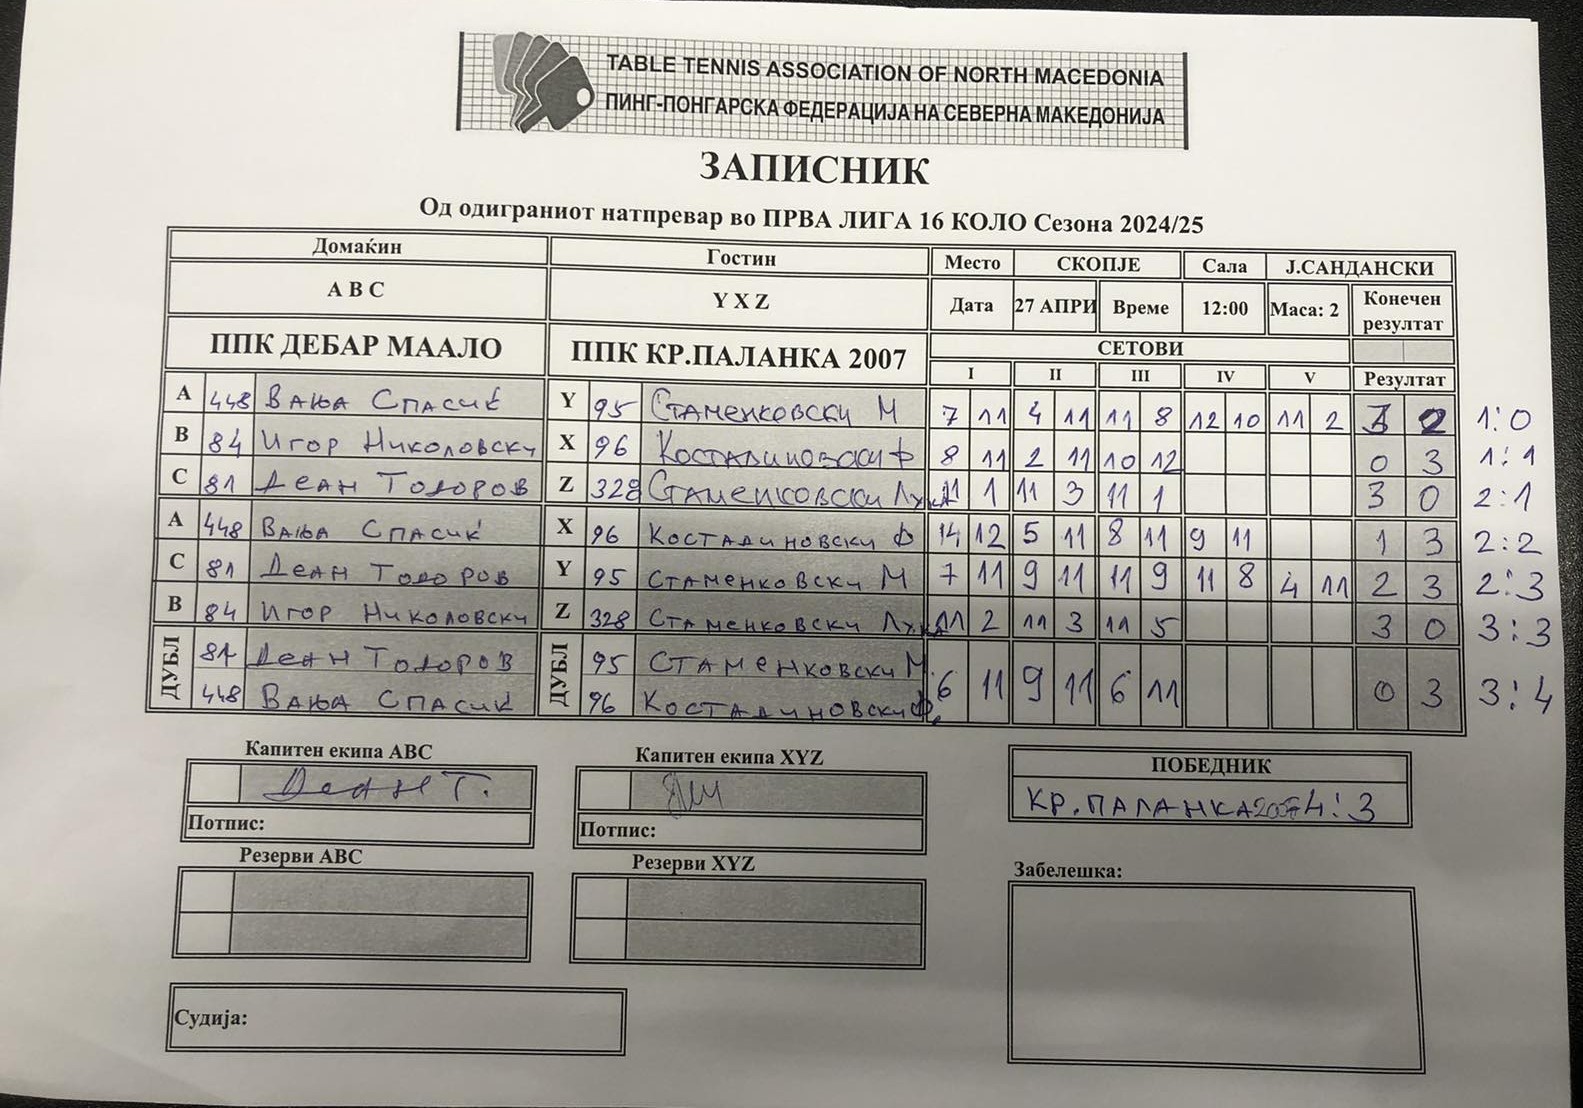 TABLE TENNIS ASSOCIATION OF NORTH MACEDONIA
ПИНГ-ПОНГАРСКА ФЕДЕРАЦИЈА НА СЕВЕРНА МАКЕДОНИЈА
ЗАПИСНИК
Од одиграниот натпревар во ПРВА ЛИГА 16 КОЛО Сезона 2024/25
Домаќин Гостин Место СКОПЈЕ Сала Ј.САНДАНСКИ
A B C Y X Z Дата 27 АПРИ Време 12:00 Маса: 2 Конечен резултат
ППК ДЕБАР МААЛО ППК КР.ПАЛАНКА 2007 СЕТОВИ
I II III IV V Резултат
A 448 Вања Спасиќ Y 95 Стаменковски М 7 11 4 11 11 8 12 10 11 2 3 2 1:0
B 84 Игор Николовски X 96 Костадиновски Ф 8 11 2 11 10 12 0 3 1:1
C 81 Деан Тодоров Z 328 Стаменковски Лука 11 1 11 3 11 1 3 0 2:1
A 448 Вања Спасиќ X 96 Костадиновски Ф 14 12 5 11 8 11 9 11 1 3 2:2
C 81 Деан Тодоров Y 95 Стаменковски М 7 11 9 11 11 9 11 8 4 11 2 3 2:3
B 84 Игор Николовски Z 328 Стаменковски Лука 11 2 11 3 11 5 3 0 3:3
ДУБЛ 81 Деан Тодоров ДУБЛ 95 Стаменковски М. 6 11 9 11 6 11 0 3 3:4
448 Вања Спасиќ 96 Костадиновски Ф.
Капитен екипа ABC Капитен екипа XYZ ПОБЕДНИК
Деан Т. КР.ПАЛАНКА 2007 4:3
Потпис: Потпис:
Резерви ABC Резерви XYZ Забелешка:
Судија: